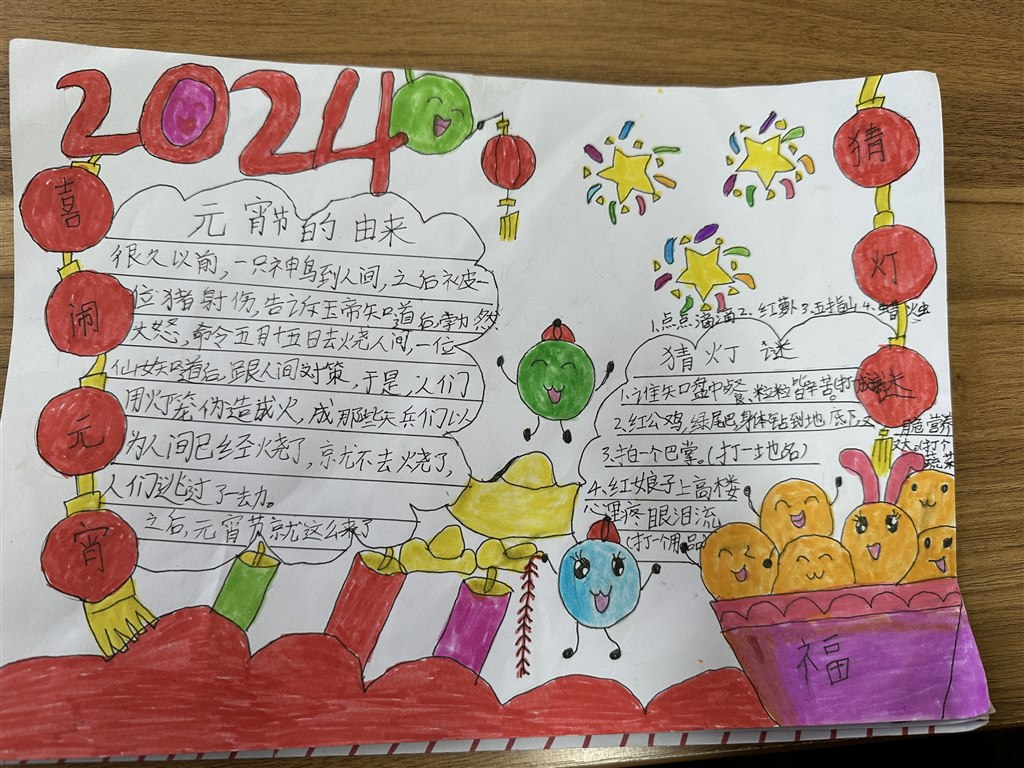 2024
喜闹元宵
元宵节的由来
很久以前,一只神鸟到人间,之后被一
位猪射伤,告诉玉帝知道后勃然
大怒,命令五月十五日去烧人间,一位
仙女知道后,跟人间对策,于是,人们
用灯笼伪造成火,成那些天兵们以
为人间已经烧了,就不去烧了,
人们逃过了一劫。
之后,元宵节就这么来了
猜灯谜
1.点点滴滴2.红萝卜3.五指山4.蜡烛
猜灯谜
1.谁知盘中餐,粒粒皆辛苦。(打成语)
2.红公鸡,绿尾巴,身体钻到地底下,又
脆营养
又大。(打个
蔬菜
3.拍一个巴掌。(打一地名)
4.红娘子上高楼
心里疼眼泪流
(打个用品)
福